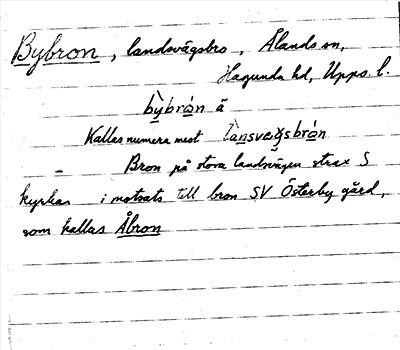 Bybron, landsvägsbro, Ålands sn,
Hagunda hd, Upps. l.
bybròn ä
Kallas numera mest lànsvegsbrón
– Bron på stora landsvägen strax S
kyrkan i motsats till bron SV Österby gård,
som kallas Åbron